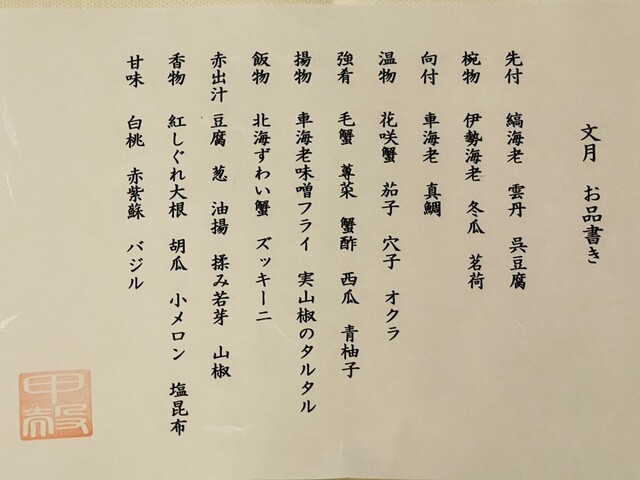 文月　お品書き
先付　縞海老　雲丹　呉豆腐
椀物　伊勢海老　冬瓜　茗荷
向付　車海老　真鯛
温物　花咲蟹　茄子　穴子　オクラ
強肴　毛蟹　蓴菜　蟹酢　西瓜　青柚子
揚物　車海老味噌フライ　実山椒のタルタル
飯物　北海ずわい蟹　ズッキーニ
赤出汁　豆腐　葱　油揚　揉み若芽　山椒
香物　紅しぐれ大根　胡瓜　小メロン　塩昆布
甘味　白桃　赤紫蘇　バジル
甲殻